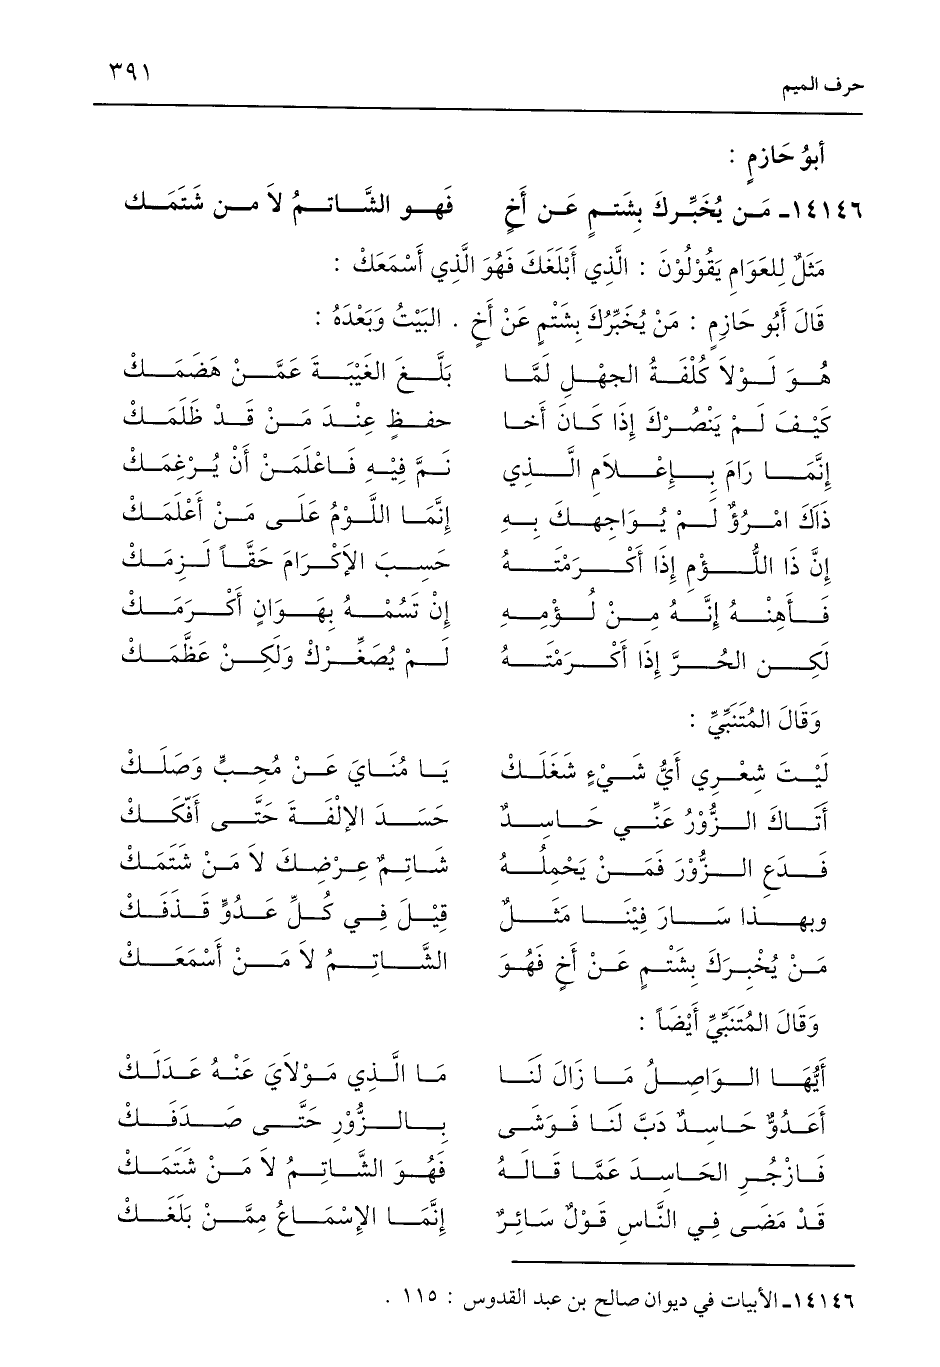 ٣٩١
حرف الميم
أَبُو حَازِمٍ :
١٤١٤٦ـ مَن يُخَبِّركَ بِشَتمٍ عَن أَخٍ فَهو الشَّاتمُ لاَ من شَتَمَك
مَثَلٌ لِلعَوَامِ يَقُولُوْنَ : الَّذِي أَبْلَغَكَ فَهُوَ الَّذِي أَسْمَعَكْ :
قَالَ أَبُو حَازِمٍ : مَنْ يُخَبِّرُكَ بِشَتْمٍ عَنْ أَخٍ . البَيْتُ وَبَعْدَهُ :
هُوَ لَوْلاَ كُلْفَةُ الجهْلِ لَمَّا بَلَّغَ الغَيْبَةَ عَمَّنْ هَضَمَكْ
كَيْفَ لَمْ يَنْصُرْكَ إِذَا كَانَ أَخَا حفظٍ عِنْدَ مَنْ قَدْ ظَلَمَكْ
إِنَّمَا رَامَ بِإِعْلاَمِ الَّذِي نَمَّ فِيْهِ فَاعْلَمَنْ أَنْ يُرْغِمَكْ
ذَاكَ امْرُؤٌ لَمْ يُوَاجِهكَ بِهِ إِنَّمَا اللَّوْمُ عَلَى مَنْ أَعْلَمَكْ
إِنَّ ذَا اللُّؤمِ إِذَا أَكْرَمْتَهُ حَسِبَ الإِكْرَامَ حَقَّاً لَزِمَكْ
فَأَهِنْهُ إِنَّهُ مِنْ لُؤْمِهِ إِنْ تَسُمْهُ بِهَوَانٍ أَكْرَمَكْ
لَكِن الحُرَّ إِذَا أَكْرَمْتَهُ لَمْ يُصَغِّرْكَ وَلَكِنْ عَظَّمَكْ
وَقَالَ المُتَنَبِّيِّ :
لَيْتَ شعْرِي أَيُّ شَيْءٍ شَغَلَكْ يَا مُنَايَ عَنْ مُحِبٍّ وَصَلَكْ
أَتَاكَ الزُّوْرُ عَنِّي حَاسِدٌ حَسَدَ الإِلْفَةَ حَتَّى أَفَّكَكْ
فَدَعِ الزُّوْرَ فَمَنْ يَحْمِلُهُ شَاتِمٌ عِرْضِكَ لاَ مَنْ شَتَمَكْ
وبِهَذا سَارَ فِيْنَا مَثَلٌ قِيْلَ فِي كُلِّ عَدُوٍّ قَذَفَكْ
مَنْ يُخْبِركَ بِشَتْمٍ عَنْ أَخٍ فَهُوَ الشَّاتِمُ لاَ مَنْ أَسْمَعَكْ
وَقَالَ المُتَنَبِّيِّ أَيْضَاً :
أَيُّهَا الوَاصِلُ مَا زَالَ لَنَا مَا الَّذِي مَوْلاَيَ عَنْهُ عَدَلَكْ
أَعَدُوٌّ حَاسِدٌ دَبَّ لَنَا فَوَشَى بِالزُّوْرِ حَتَّى صَدَفَكْ
فَازْجُرِ الحَاسِدَ عَمَّا قَالَهُ فَهُوَ الشَّاتِمُ لاَ مَنْ شَتَمَكْ
قَدْ مَضَى فِي النَّاسِ قَوْلٌ سَائِرٌ إِنَّمَا الإِسْمَاعُ مِمَّنْ بَلَغَكْ
١٤١٤٦ـ الأبيات في ديوان صالح بن عبد القدوس : ١١٥ .